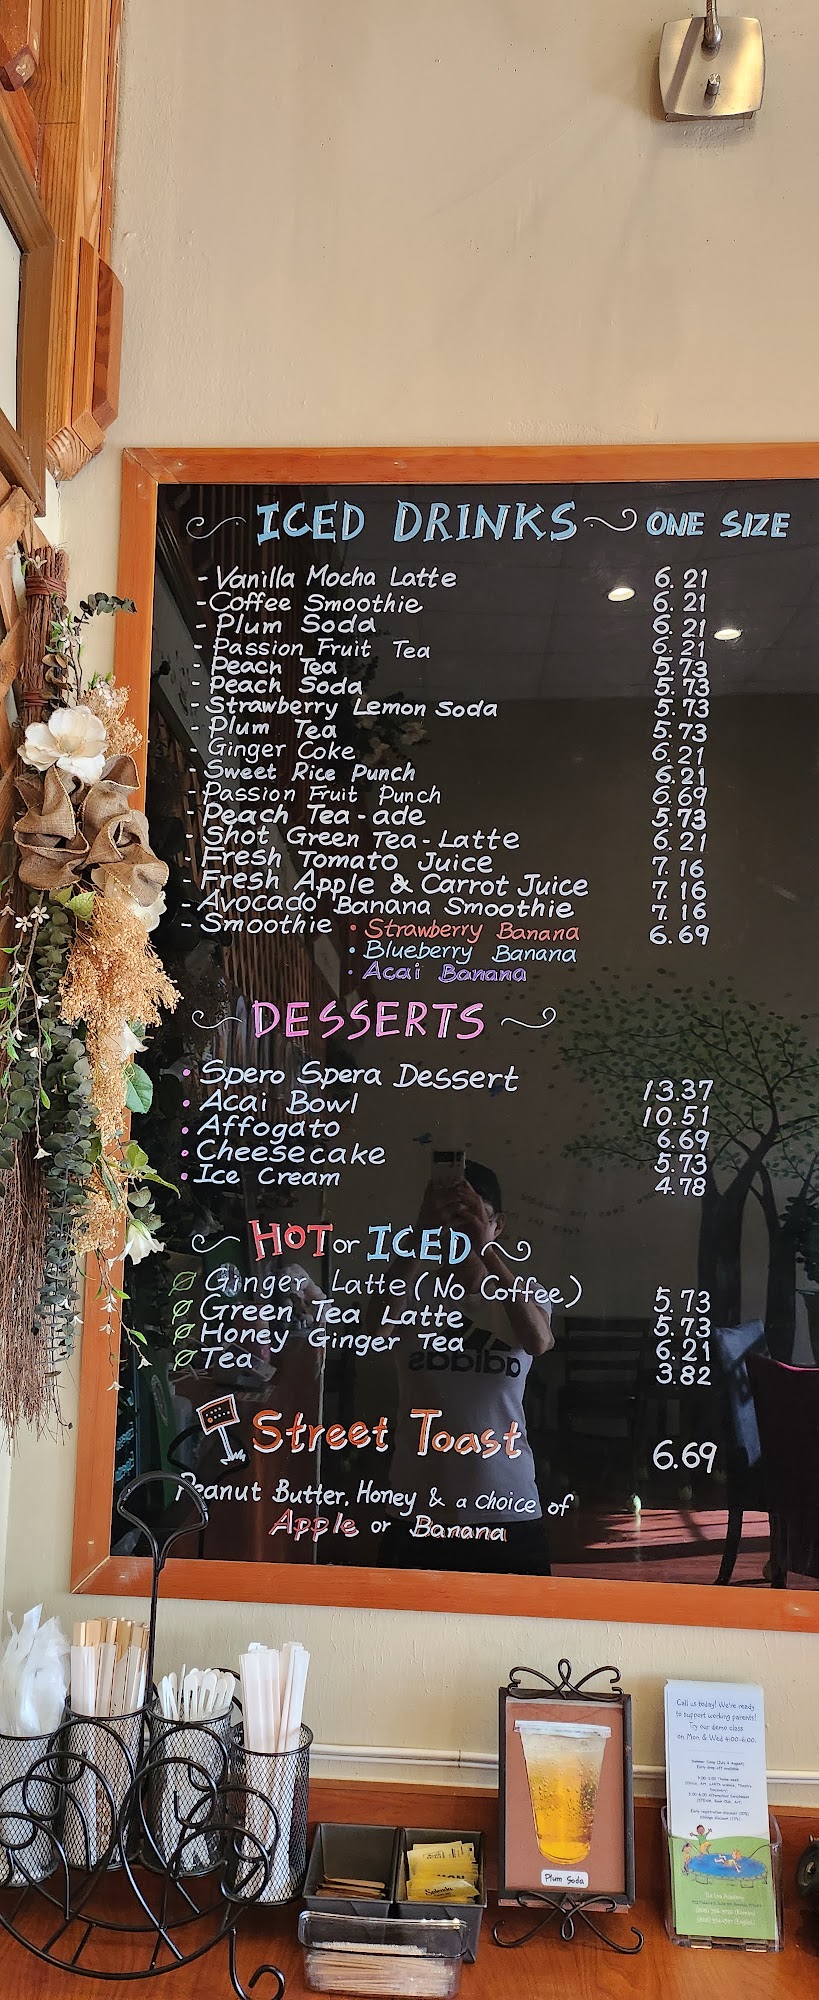 ICED DRINKS ONE SIZE
- Vanilla Mocha Latte 6.21
- Coffee Smoothie 6.21
- Plum Soda 6.21
- Passion Fruit Tea 6.21
- Peach Tea 5.73
- Peach Soda 5.73
- Strawberry Lemon Soda 5.73
- Plum Tea 5.73
- Ginger Coke 6.21
- Sweet Rice Punch 6.21
- Passion Fruit Punch 6.69
- Peach Tea-ade 5.73
- Shot Green Tea-Latte 6.21
- Fresh Tomato Juice 7.16
- Fresh Apple & Carrot Juice 7.16
- Avocado Banana Smoothie 7.16
- Smoothie • Strawberry Banana 6.69
• Blueberry Banana
• Acai Banana
DESSERTS
• Spero Spera Dessert 13.37
• Acai Bowl 10.51
• Affogato 6.69
• Cheesecake 5.73
• Ice Cream 4.78
HOT or ICED
Ginger Latte (No Coffee) 5.73
Green Tea Latte 5.73
Honey Ginger Tea 6.21
Tea 3.82
adidas
Street Toast 6.69
Peanut Butter, Honey & a choice of
Apple or Banana
Plum Soda
Call us today! We're ready
to support working parents!
Try our demo class
on Mon & Wed 4:00-6:00.